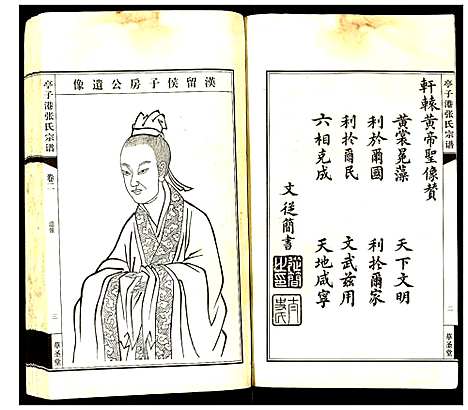 軒轅黃帝聖像贊
黃裳冕藻 天下文明
利於爾國 利於爾家
利於爾民 文武兹用
六相克成 天地咸寧
文從簡書
二
草圣堂
漢留侯子房公遺像
亭子港张氏宗谱
卷二
遗像
三
草圣堂